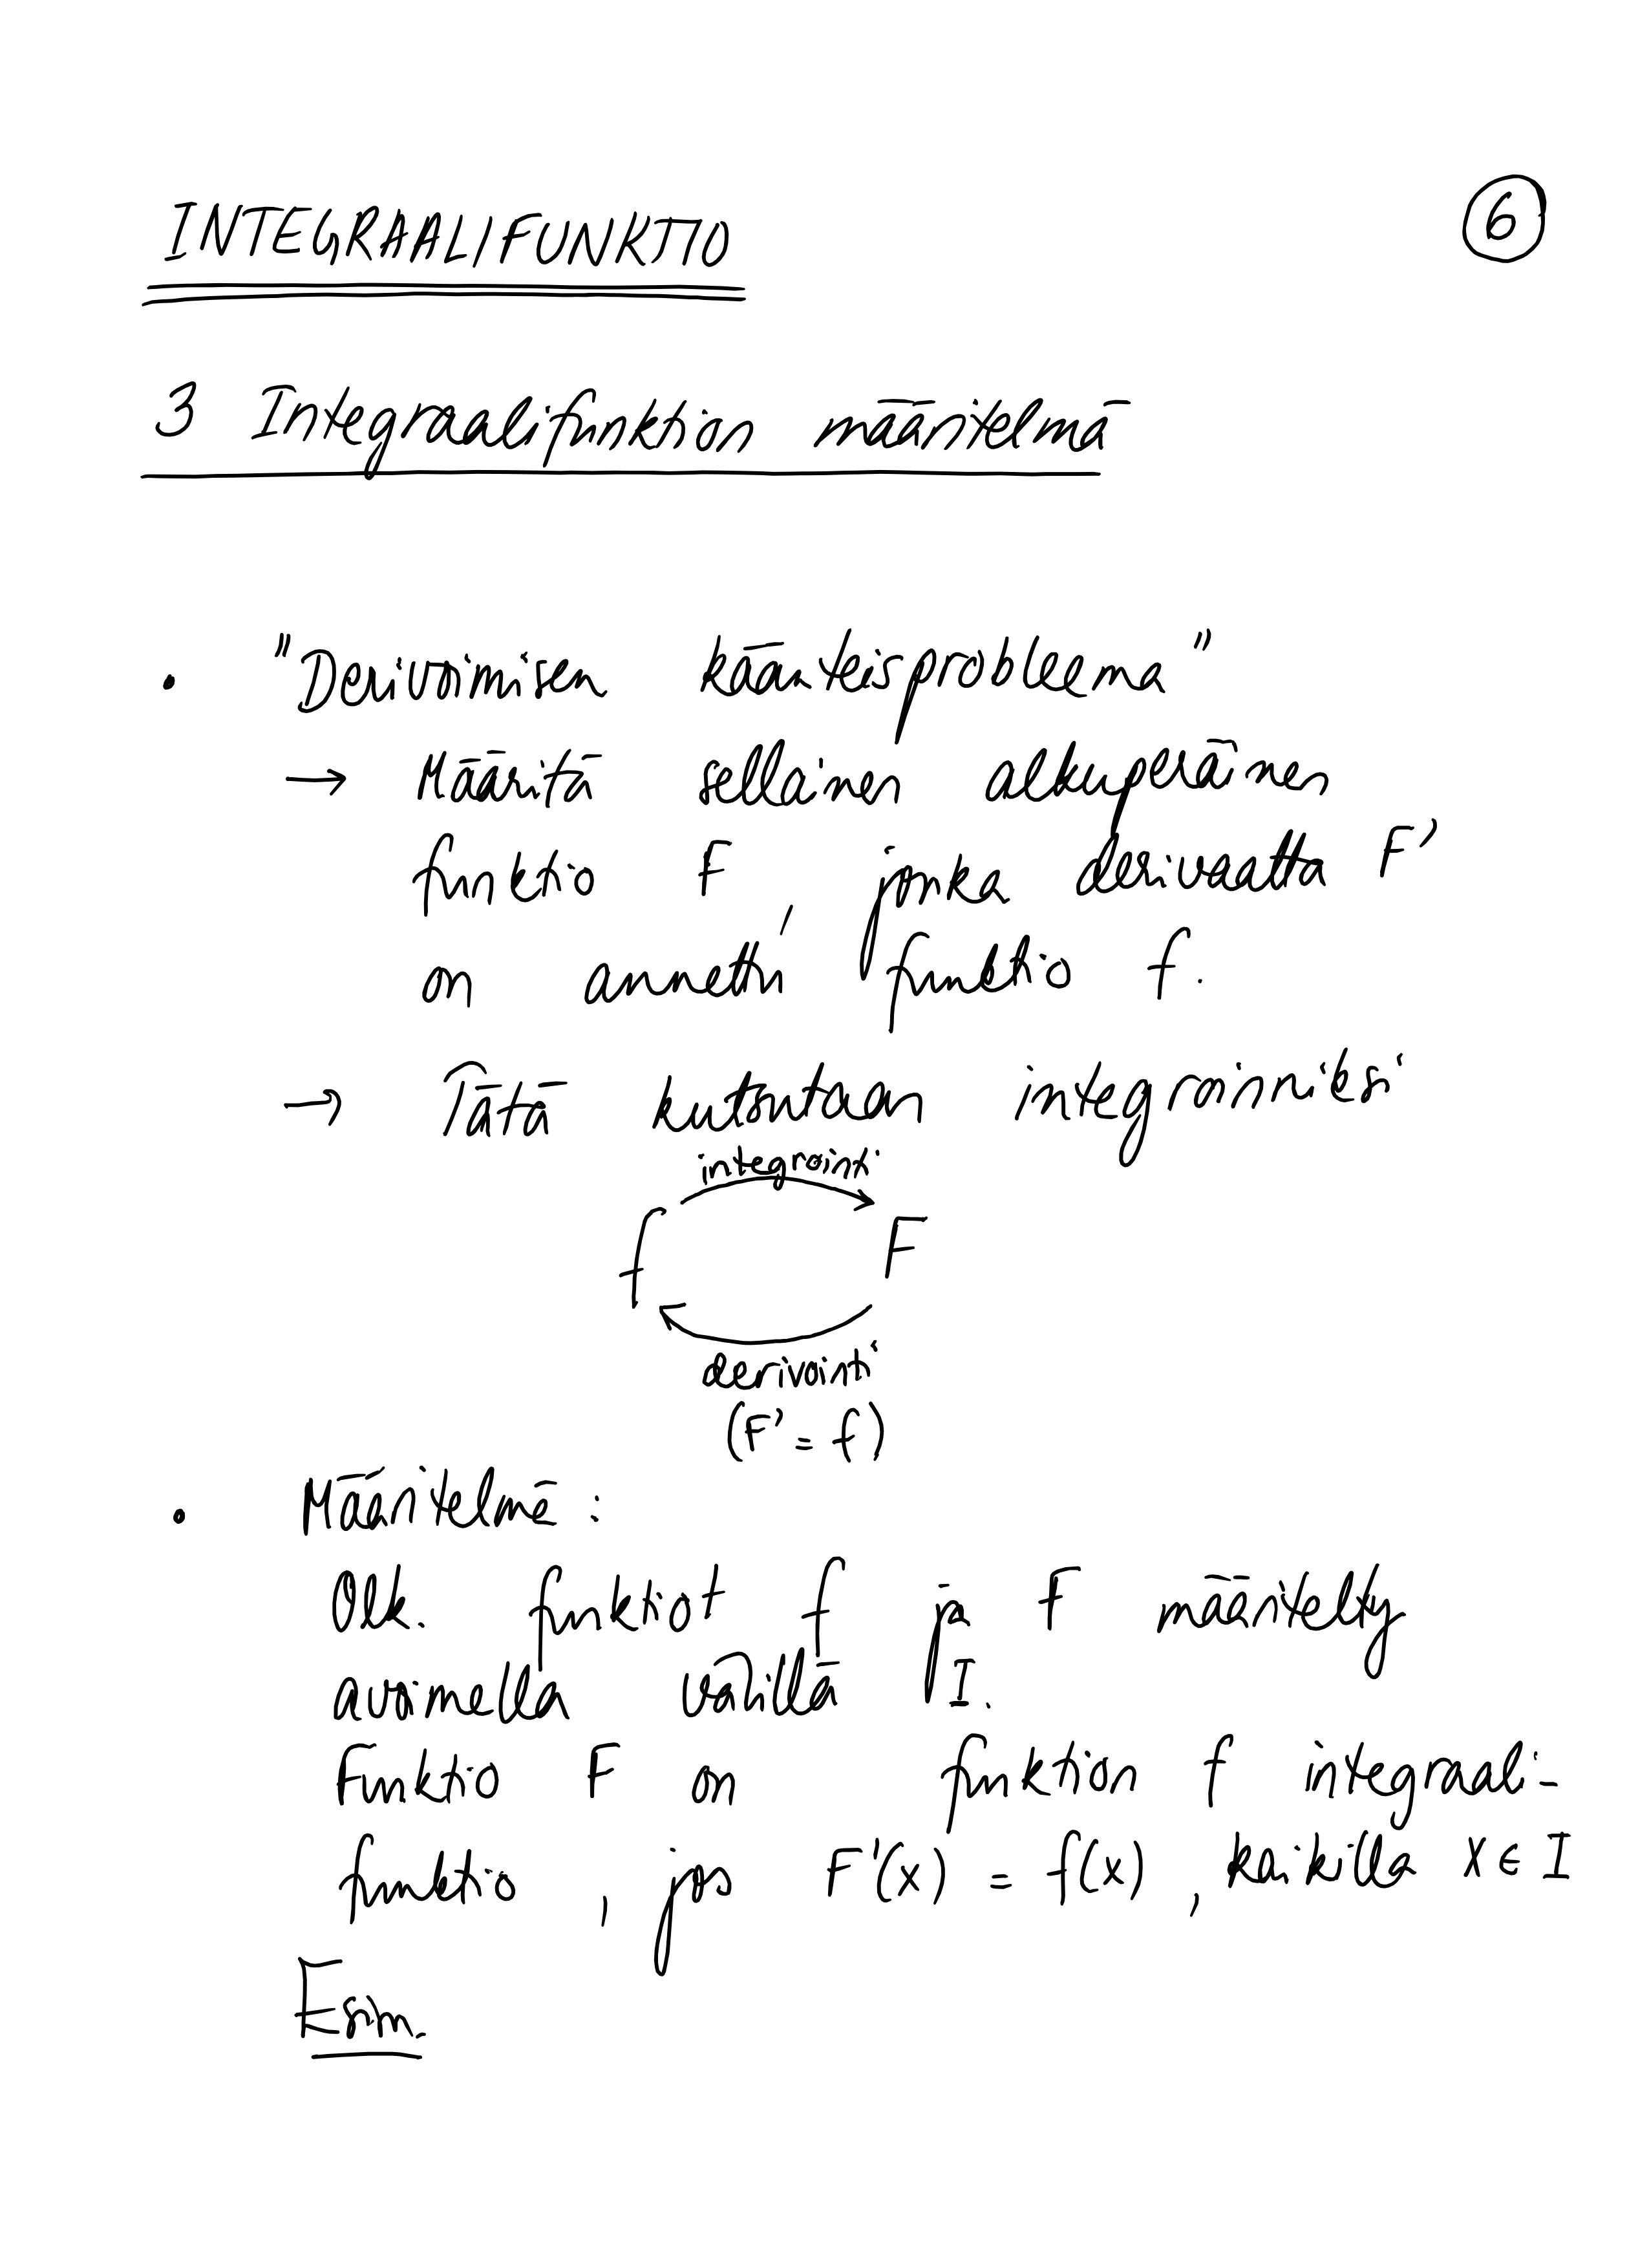 INTEGRAALIFUNKTIO
6
3 Integraalifunktion määritelmä
• "Derivoimisen käänteisprobleema"
→ Määritä sellainen alkuperäinen
funktio F, jonka derivaatta F'
on annettu funktio f.
→ Tätä kutsutaan integroinniksi
integrointi
f F
derivointi
(F' = f)
• Määritelmä:
Olk. funktiot f ja F määritelty
avoimella välillä I.
Funktio F on funktion f integraali-
funktio, jos F'(x) = f(x), kaikilla x ∈ I
Esim.